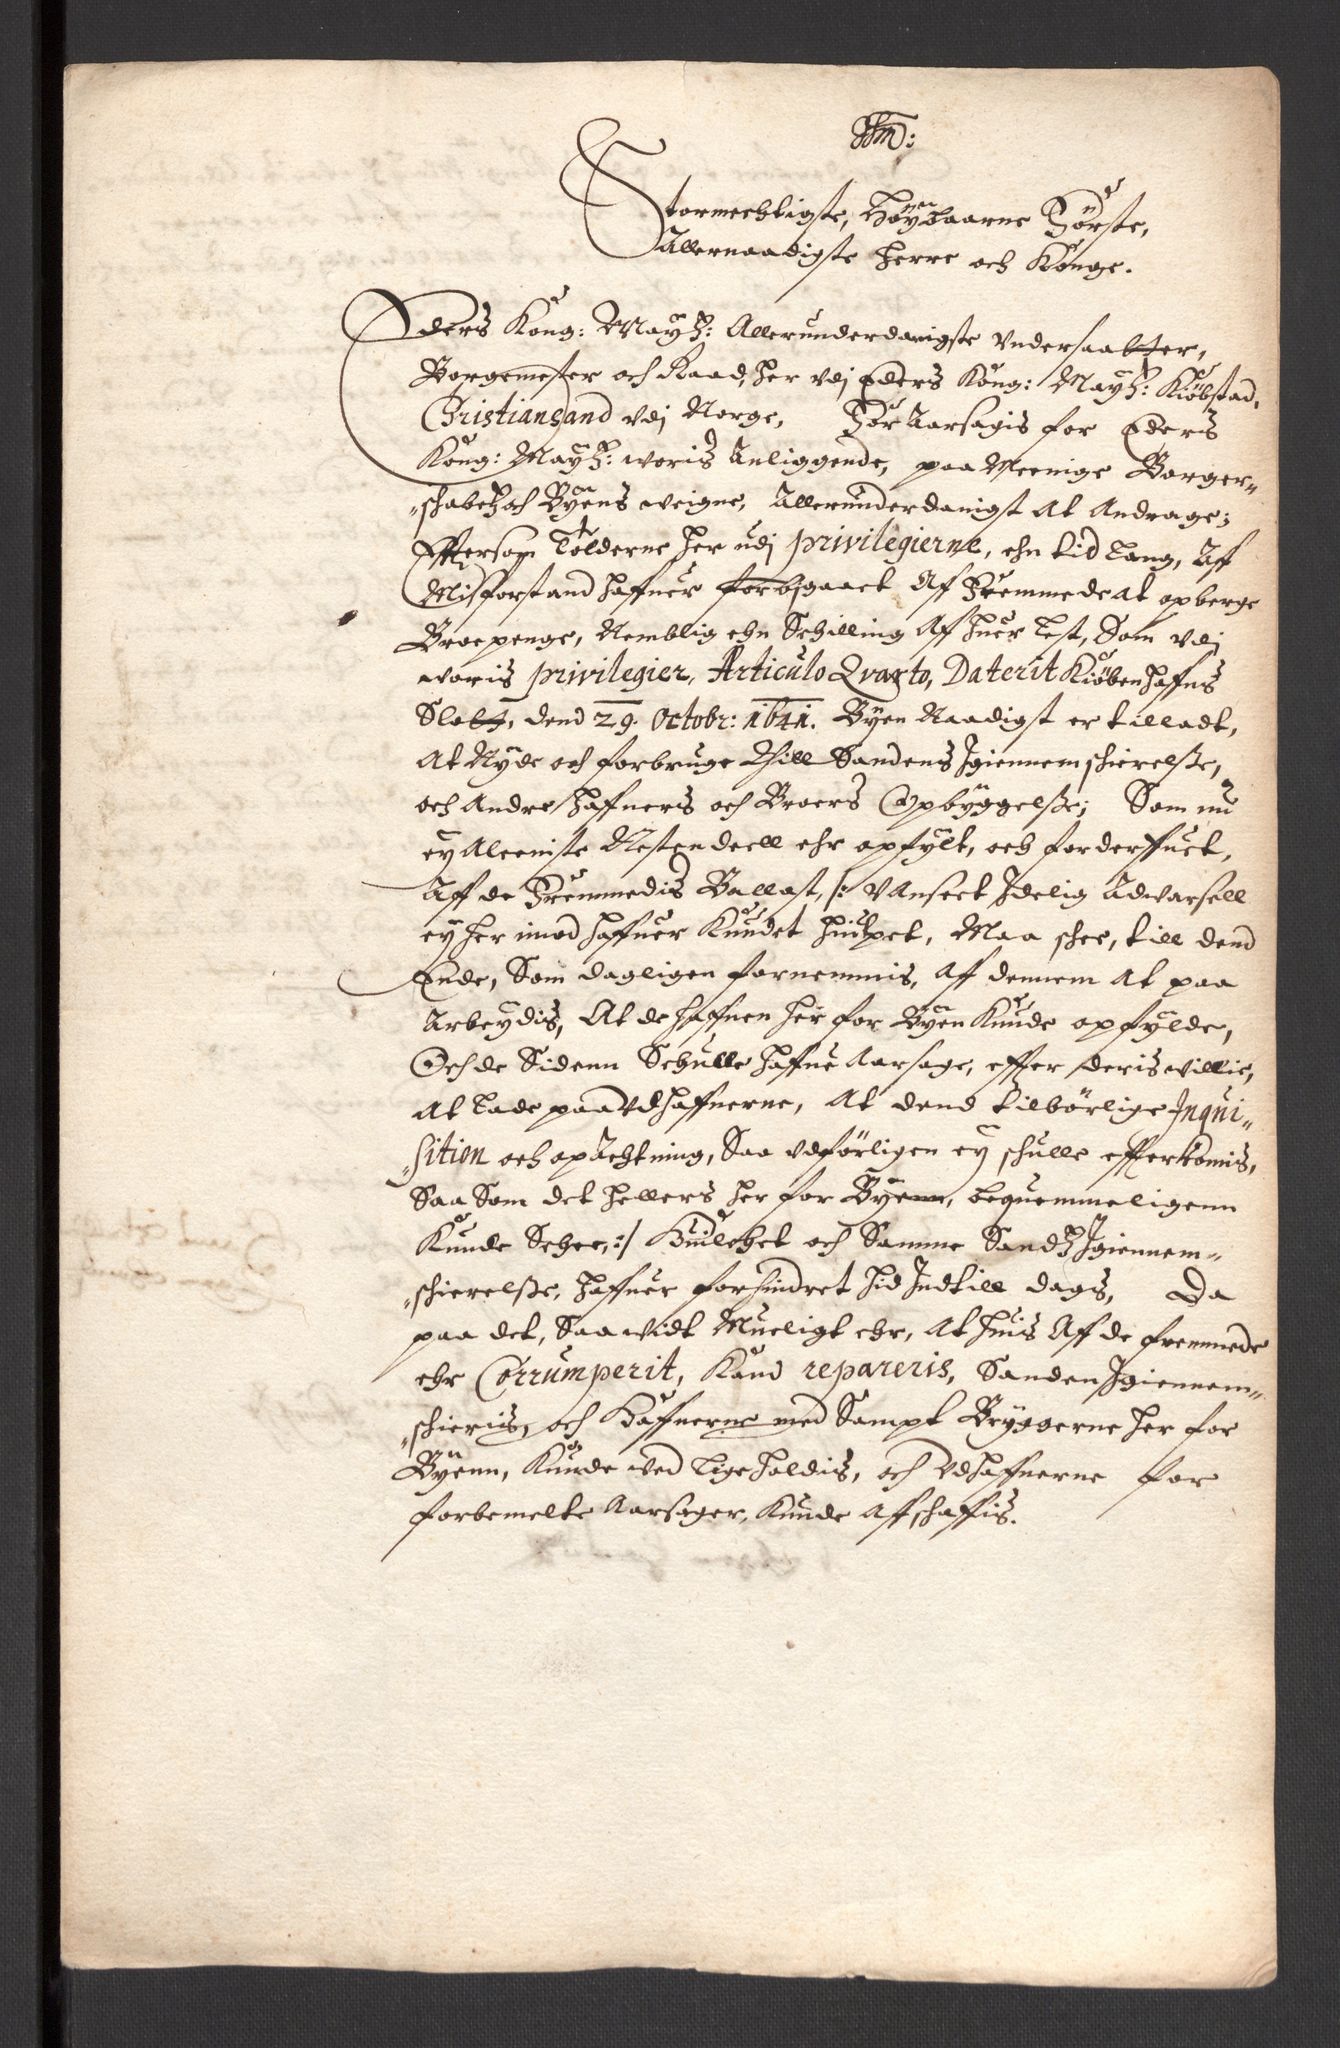 Stormechtigste, Høybaarne Første,
Allernaadigste Herre och Konge.
Eders Kong: Mayᵗᶻ: Allerunderdanigste Vndersaatter,
Borgemester och Raad, her vdj Eders Kong: Mayᵗᶻ: Kiøbstad,
Christiansand vdj Norge, For Aarsagis for Eders
Kong: Mayᵗᶻ: woris Anliggende, paa Meenige Borger„
„schabetz och Byens weigne, Allerunderdanigst At Andrage;
Effterson Tolderne her udj privilegierne, ehn tid lang, Af
Misforstand haffuer forbigaaet Af Fremmede at opberge
Broepenge, Nemblig ehn Schilling Af huer Lest, Som vdj
woris privilegier, Articulo Qvarto, Daterit Kiøbenhaffns
Slott, dend 29. Octobr: 1641. Byen Naadigst er tilladt,
At Nyde och forbruge Thill Sandens Igiennemschierelsze,
och Andre Haffners och Broers Opbyggelsze; Som nu
ey Aleeniste Mesten deell ehr opfylt, och forderffuet,
Aff de Fremmedis Ballast, /: Vanseet Idelig Adwarsell
ey her imod haffuer Kundet hiulpet, Maa schee, till dend
Ende, Som dagligen fornemmis, Af dennem At paa
Arbeydis, At de haffnen her for Byen Kunde opfylde,
Och de Sidenn Schulle haffue Aarsage, effter deris willie,
At lade paa Vdhaffnerne, At dend tilbørlige Inqui„
„sition och opachtning, Saa vdførligen ey schulle effterkomis,
Saa Som det hellers her for Byenn, bequemmeligenn
Kunde Schee, :/ Huilchet och Samme Sandtz Igiennem„
„schierelsze, haffuer forhindret hid Indtill dags, Da
paa det, Saa widt Mueligt ehr, At huis Aff de fremmede
ehr Corrumperit, Kand repareris, Sanden Igiennem„
„schieris, och Haffnerne med Sampt Bryggerne her for
Byenn, Kunde wed lige holdis, och Vdhaffnerne for
forbemelte Aarsager, Kunde Affschaffis.